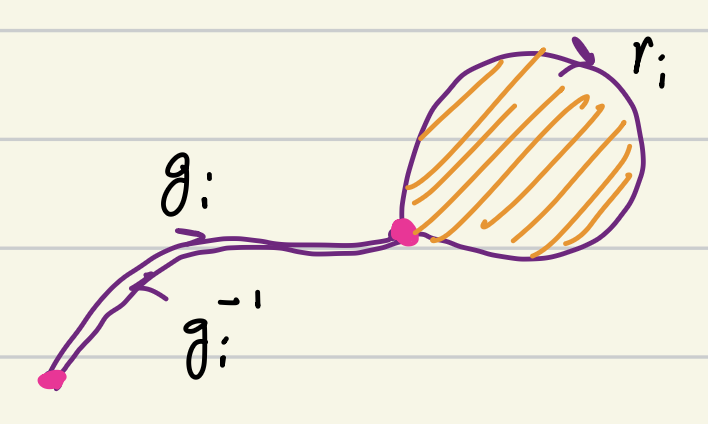 rᵢ
gᵢ
gᵢ⁻¹